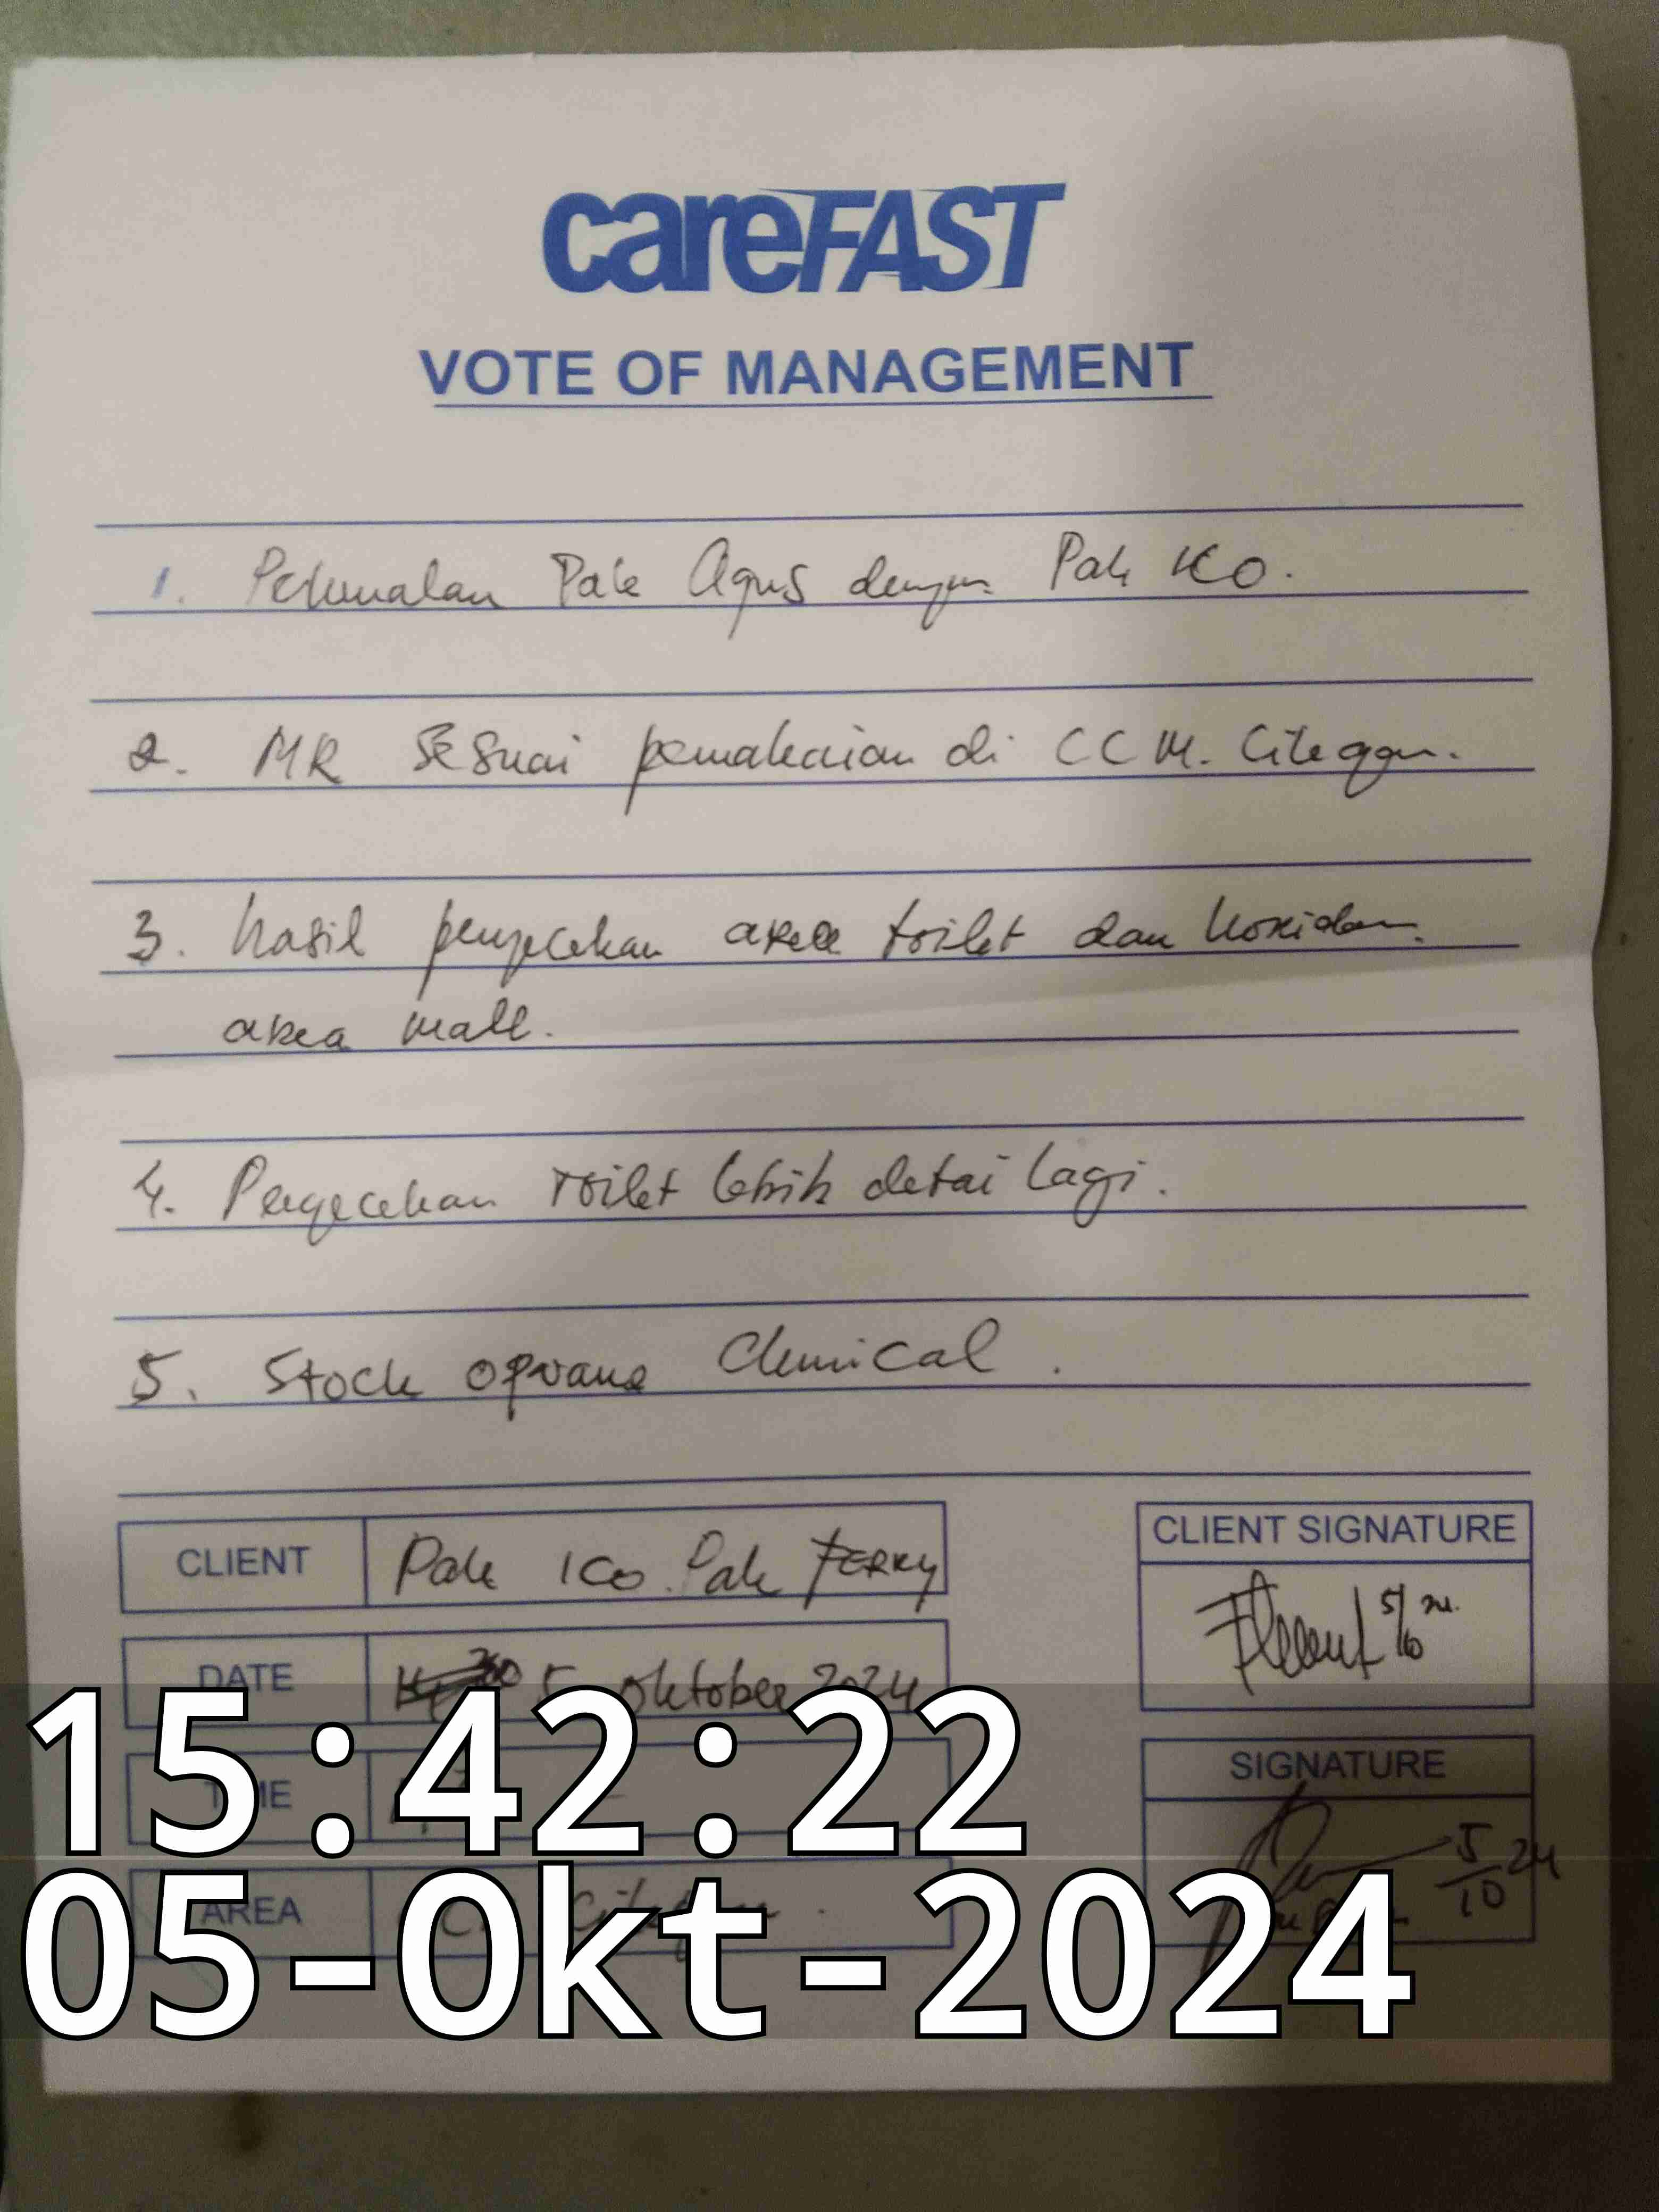 careFAST
VOTE OF MANAGEMENT
1. Perkenalan Pak Agus dengan Pak ICO.
2. MR Sesuai pemakaian di CCM. Cilegon.
3. hasil pengecekan area toilet dan koridor
area mall.
4. Pengecekan toilet lebih detai lagi.
5. Stock opname Chemical.
CLIENT Pak ICO. Pak FERRY
CLIENT SIGNATURE
5/10 24.
DATE 5 Oktober 2024
TIME
SIGNATURE
5/10 24
AREA Cilegon.
15:42:22
05-Okt-2024